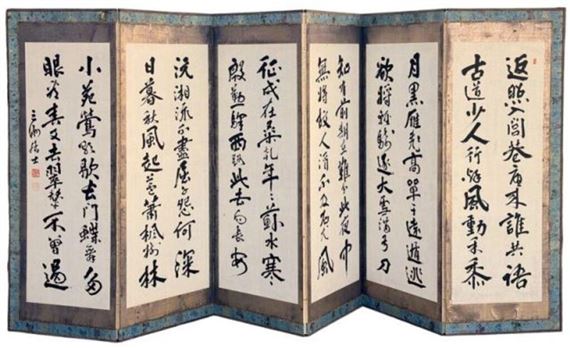 返照入閭巷憂来誰共語
古道少人行秋風動禾黍
月黒雁飛高單于遠遁逃
欲將輕騎逐大雪満弓刀
知有前期在難分此夜中
無將故人酒不及石尤風
征戍在桑乾年々薊水寒
殷勤驛西路此去向長安
沅湘流不盡屈子怨何深
日暮秋風起蕭蕭楓樹林
小苑鶯歌歇長門蝶舞多
眼看春又去翠輦不曾過
三洲居士